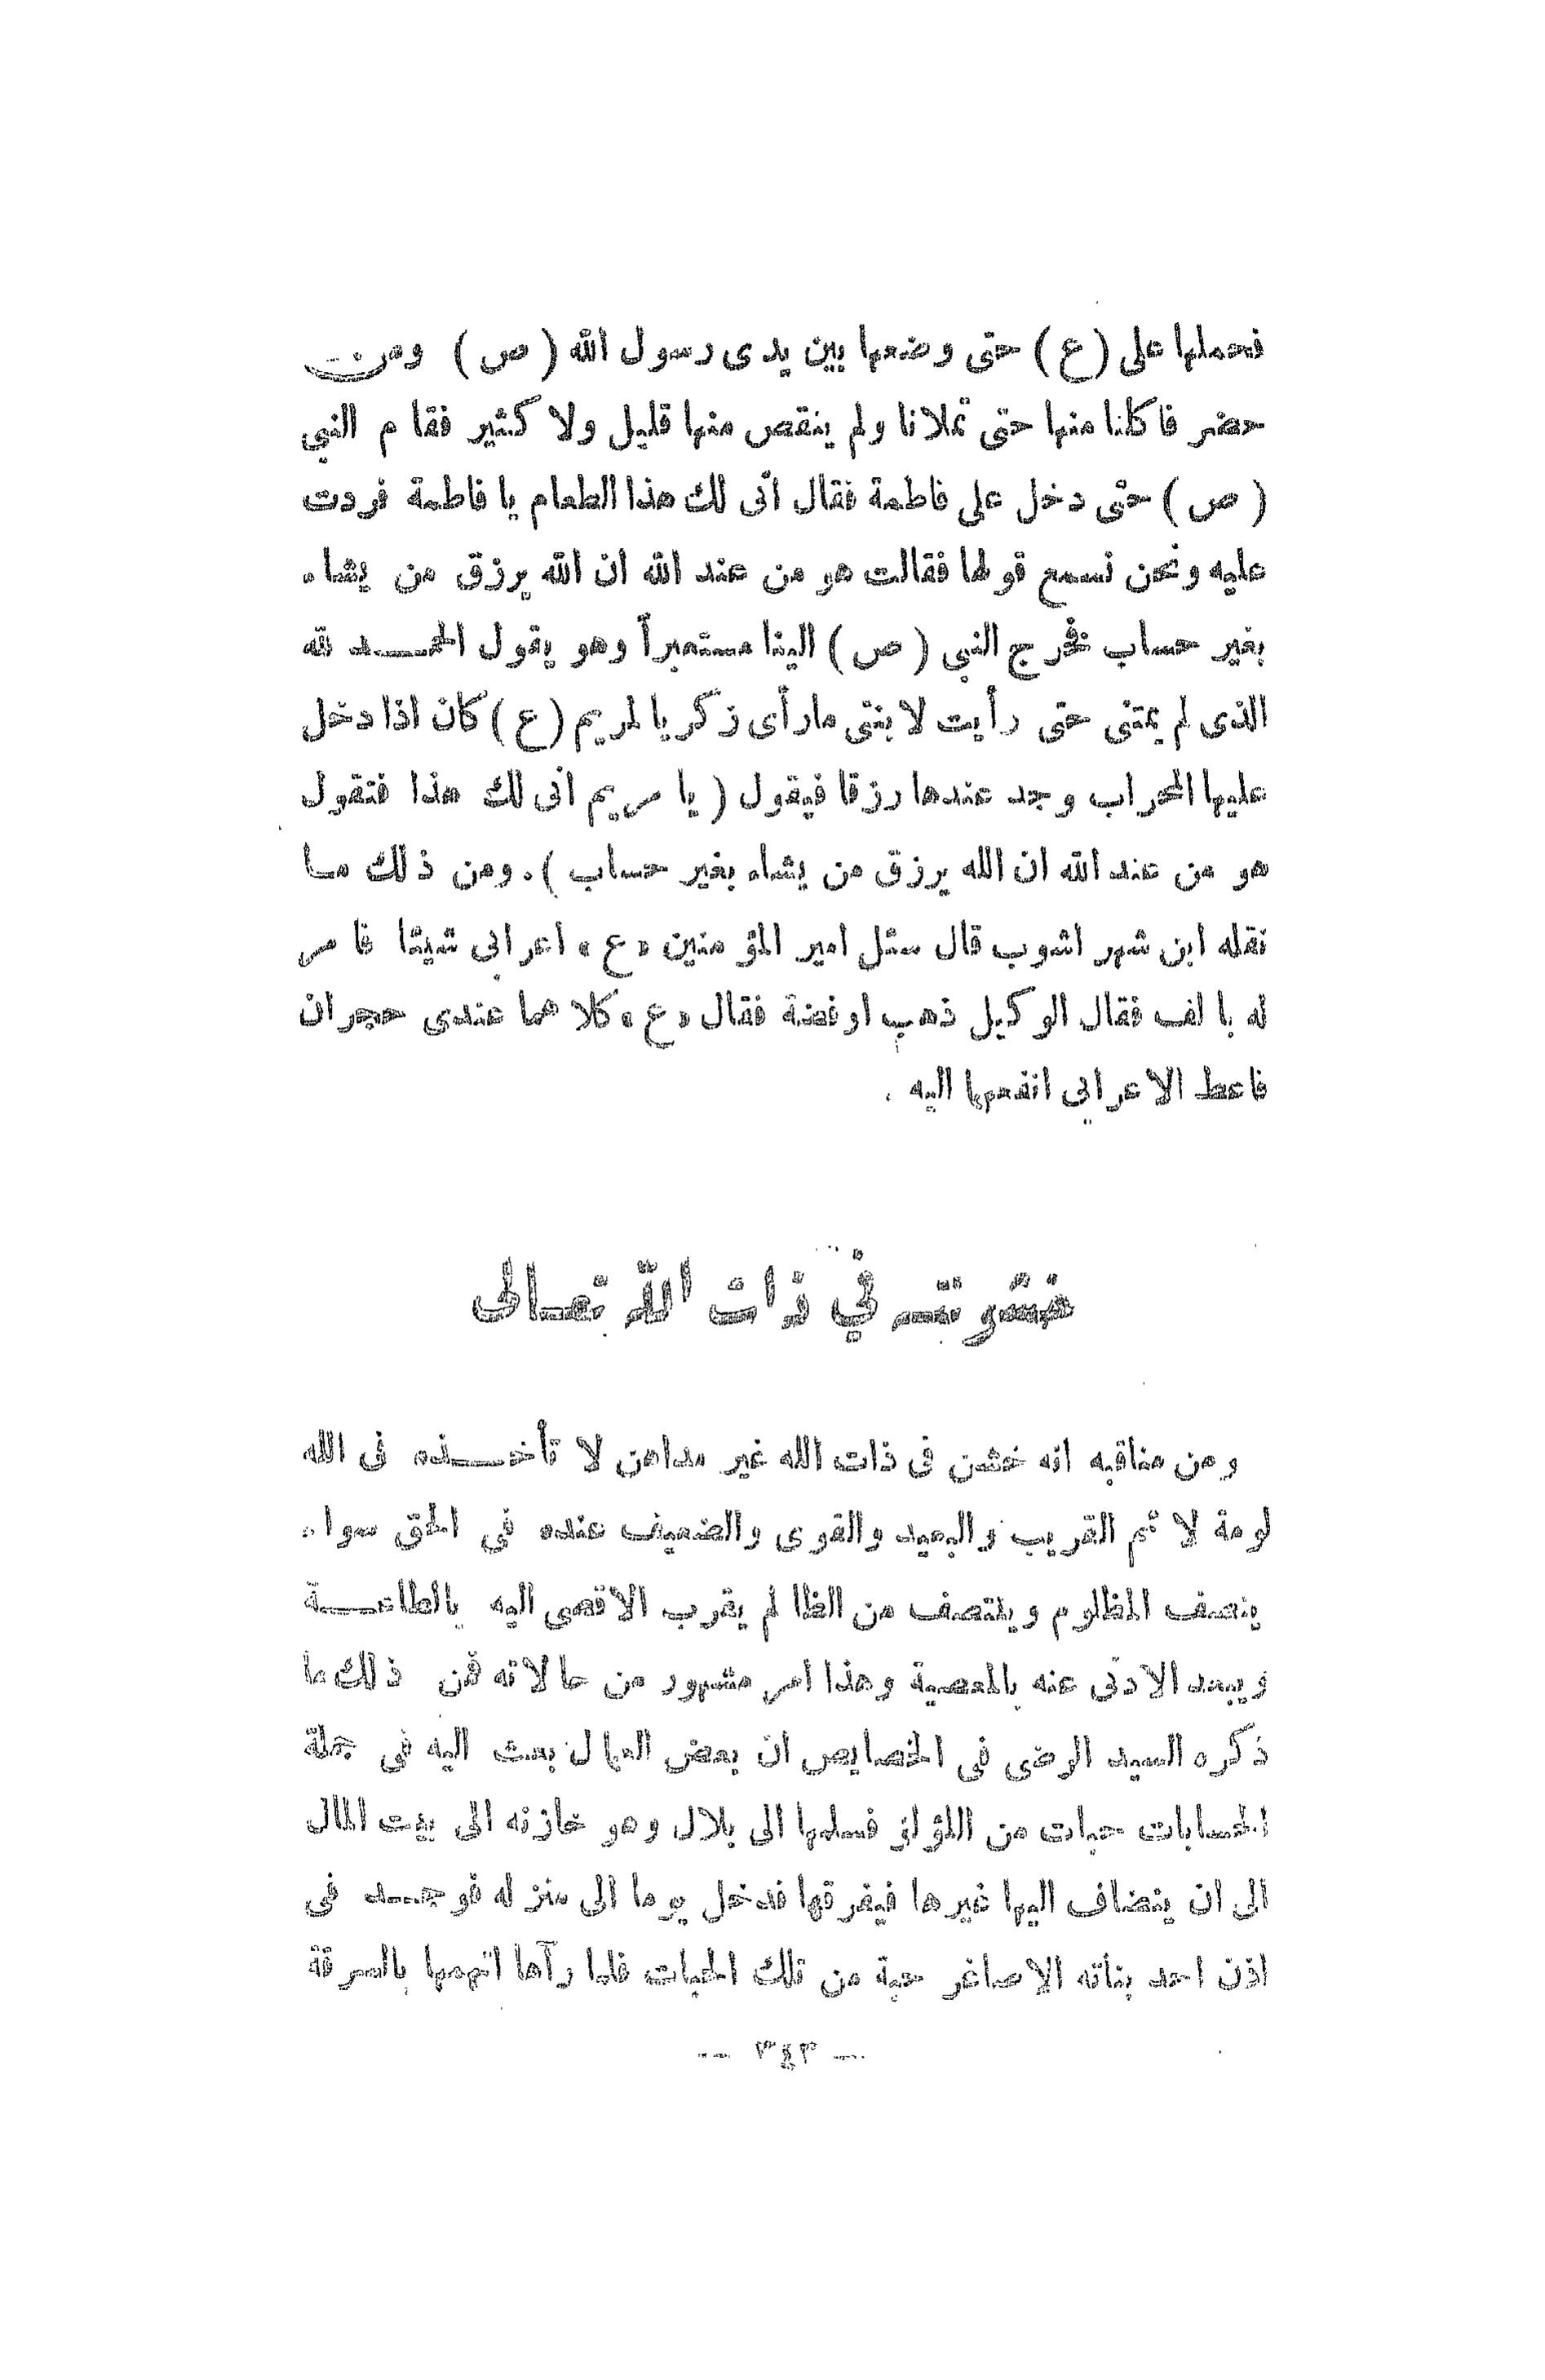 فحملها على (ع) حتى وضعها بين يدى رسول الله (ص) ومن
حضر فاكلنا منها حتى تملانا ولم ينقص منها قليل ولا كثير فقام النبي
(ص) حتى دخل على فاطمة فقال أنى لك هذا الطعام يا فاطمة فردت
عليه ونحن نسمع قولها فقالت هو من عند الله ان الله يرزق من يشاء
بغير حساب فخرج النبي (ص) الينا مستعبراً وهو يقول الحمد لله
الذى لم يمتنى حتى رأيت لابنتى مارأى زكريا لمريم (ع) كان اذا دخل
عليها المحراب وجد عندها رزقا فيقول (يا مريم انى لك هذا فتقول
هو من عند الله ان الله يرزق من يشاء بغير حساب). ومن ذلك ما
نقله ابن شهر اشوب قال سئل امير المؤمنين «ع» اعرابى شيئا فامر
له بالف فقال الوكيل ذهب او فضة فقال «ع» كلاهما عندى حجران
فاعط الاعرابى انفعهما اليه .
خشونته في ذات الله تعالى
ومن مناقبه انه خشن فى ذات الله غير مداهن لا تأخذه فى الله
لومة لائم القريب والبعيد والقوى والضعيف عنده في الحق سواء
ينصف المظلوم وينتصف من الظالم يقرب الاقصى اليه بالطاعة
ويبعد الادنى عنه بالمعصية وهذا امر مشهور من حالاته فمن ذلك ما
ذكره السيد الرضى فى الخصايص ان بعض العمال بعث اليه فى جملة
الحسابات حبات من اللؤلؤ فسلمها الى بلال وهو خازنه الى بيت المال
الى ان ينضاف اليها غيرها فيفرقها فدخل يوما الى منزله فوجد فى
اذن احد بناته الاصاغر حبة من تلك الحبات فلما رآها اتهمها بالسرقة
— ٣٤٣ —